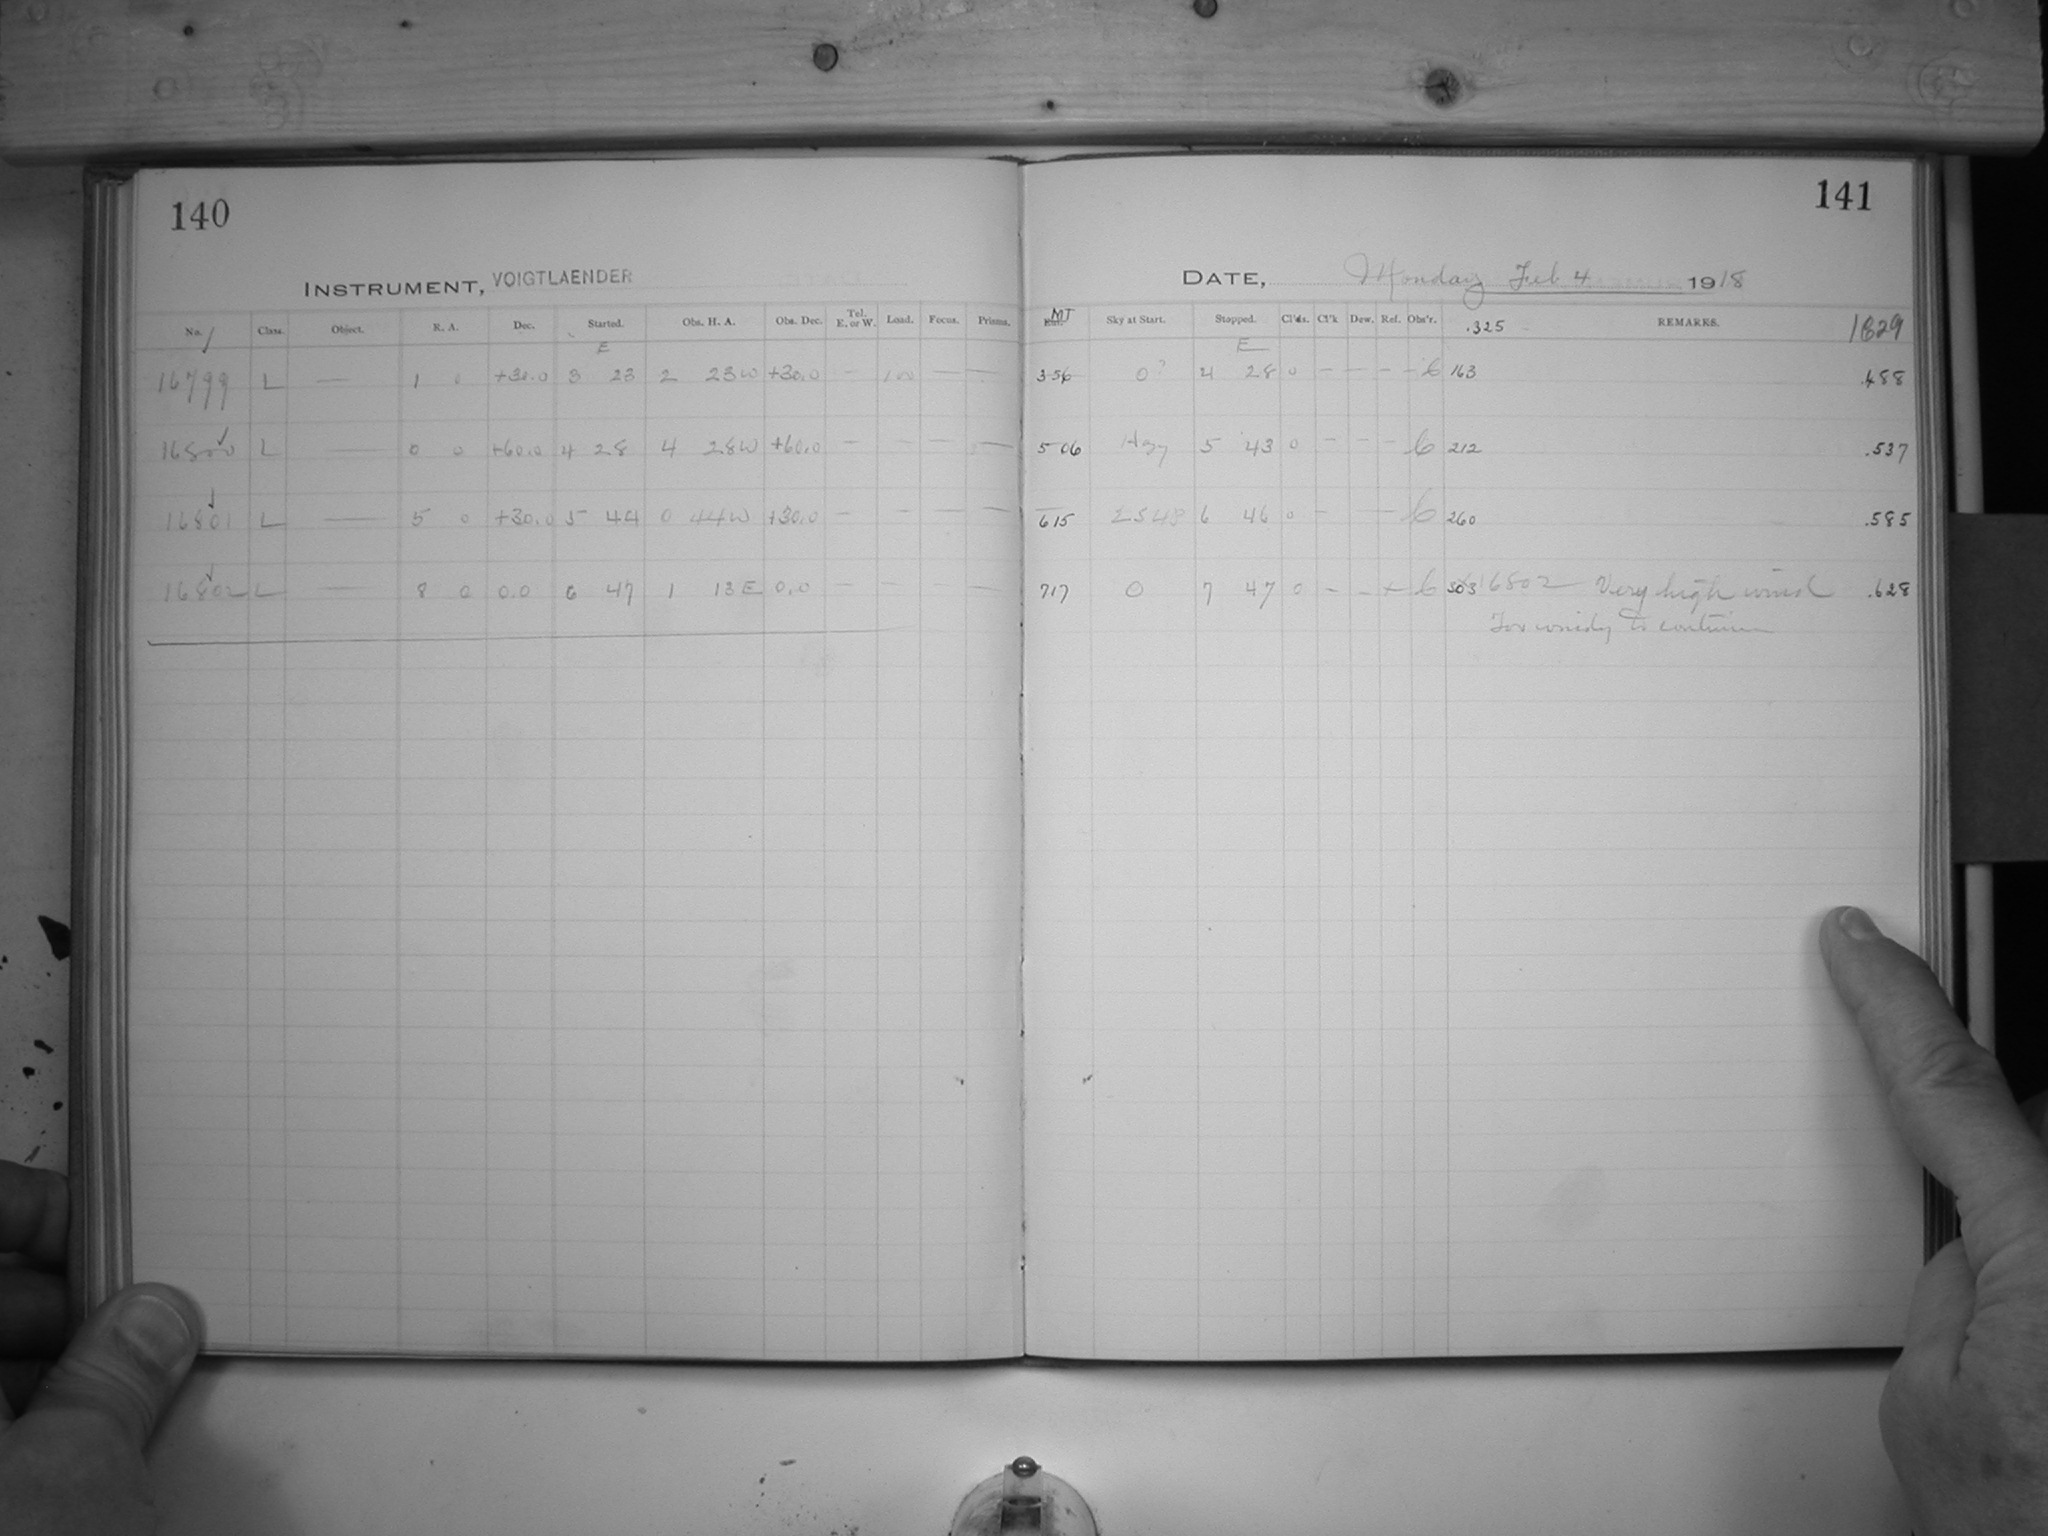 140
INSTRUMENT, VOIGTLAENDER
No. Class. Object. R. A. Dec. Started. Obs. H. A. Obs. Dec. Tel. E. or W. Load. Focus. Prisms.
E
16799 L — 1 0 +30.0 3 23 2 23W +30.0 — — —
16800 L — 0 0 +60.0 4 28 4 28W +60.0 — — — —
16801 L — 5 0 +30.0 5 44 0 44W +30.0 — — — —
16802 L — 8 0 0.0 6 47 1 13E 0.0 — — — —
141
DATE, Monday Feb 4 1918
MT Sky at Start. Stopped. Cl'ds. Cl'k Dew. Ref. Obs'r. .325 REMARKS. 1829
E
3 56 0? 4 28 0 — — — — 6 163 .488
5 06 Hazy 5 43 0 — — — 6 212 .537
6 15 6 46 0 — — 6 260 .585
7 17 0 7 47 0 — — 6 303 16802 Very high wind .628
Too windy to continue